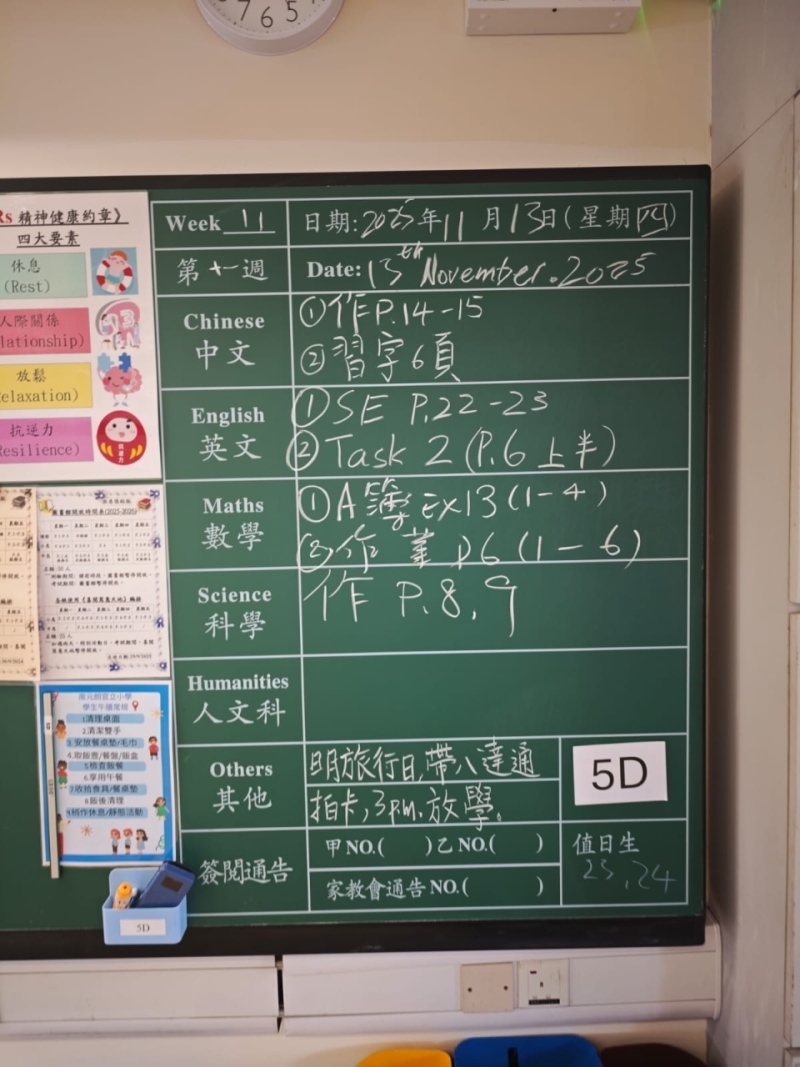 7 6 5
Rs 精神健康約章》
四大要素
休息
(Rest)
人際關係
lationship)
放鬆
elaxation)
抗逆力
esilience)
Week 11
日期:2025年11月13日(星期四)
第十一週
Date: 13th November. 2025
Chinese
中文
①作P.14-15
②習字6頁
English
英文
①SE P.22-23
②Task 2 (P.6上半)
Maths
數學
①A簿 Ex13(1-4)
②作業 P6(1-6)
Science
科學
作 P.8,9
Humanities
人文科
Others
其他
明旅行日,帶八達通
拍卡,3pm.放學。
5D
簽閱通告
甲NO.( )乙NO.( )
家教會通告NO.( )
值日生
23,24
圖書館開放時間表(2025-2026)
星期一 星期二 星期三 星期四 星期五
南元朗官立小學
學生午膳常規
1清理桌面
2清潔雙手
3.安放餐桌墊/毛巾
4.取飯壺/餐盤/飯盒
5檢查飯餐
6.享用午餐
7收拾食具/餐桌墊
8飯後清理
9稍作休息/靜態活動
5D